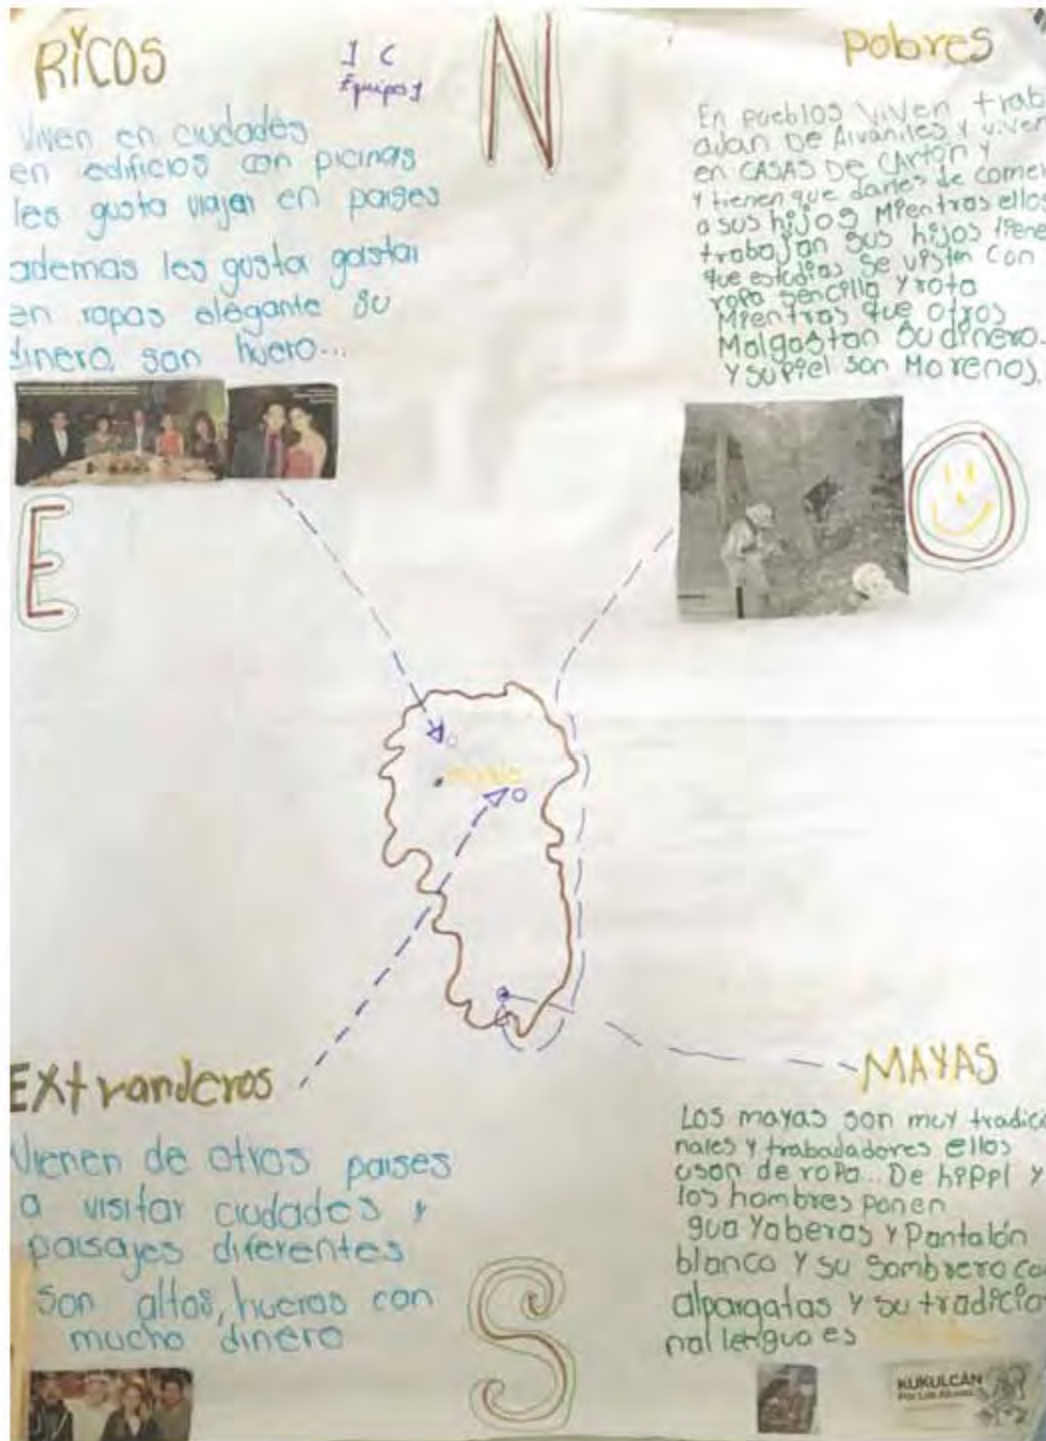 RiCOS
1 C
Equipo 1
N
Pobres
Viven en ciudades
en edificios con picinas
les gusta viajar en paises
ademas les gusta gastar
en ropas elegante su
dinero son huero...
En pueblos viven trab
ajan De Alvañiles y viven
en CASAS DE CArtón y
y tienen que darles de comer
a sus hijos Mientras ellos
trabajan sus hijos tiene
que estudias se visten con
ropa sencilla y rota
Mientras que otros
Malgastan su dinero.
y su piel son Morenos.
E
Extranderos
Vienen de otros paises
a visitar ciudades y
paisajes diferentes
son altos, hueros con
mucho dinero
S
MAYAS
Los mayas son muy tradicio
nales y trabadadores ellos
usan de ropa... De hippl y
los hombres ponen
guayaberas y Pantalón
blanco y su sombrero con
alpargatas y su tradicio
nal lengua es
KUKULCÁN